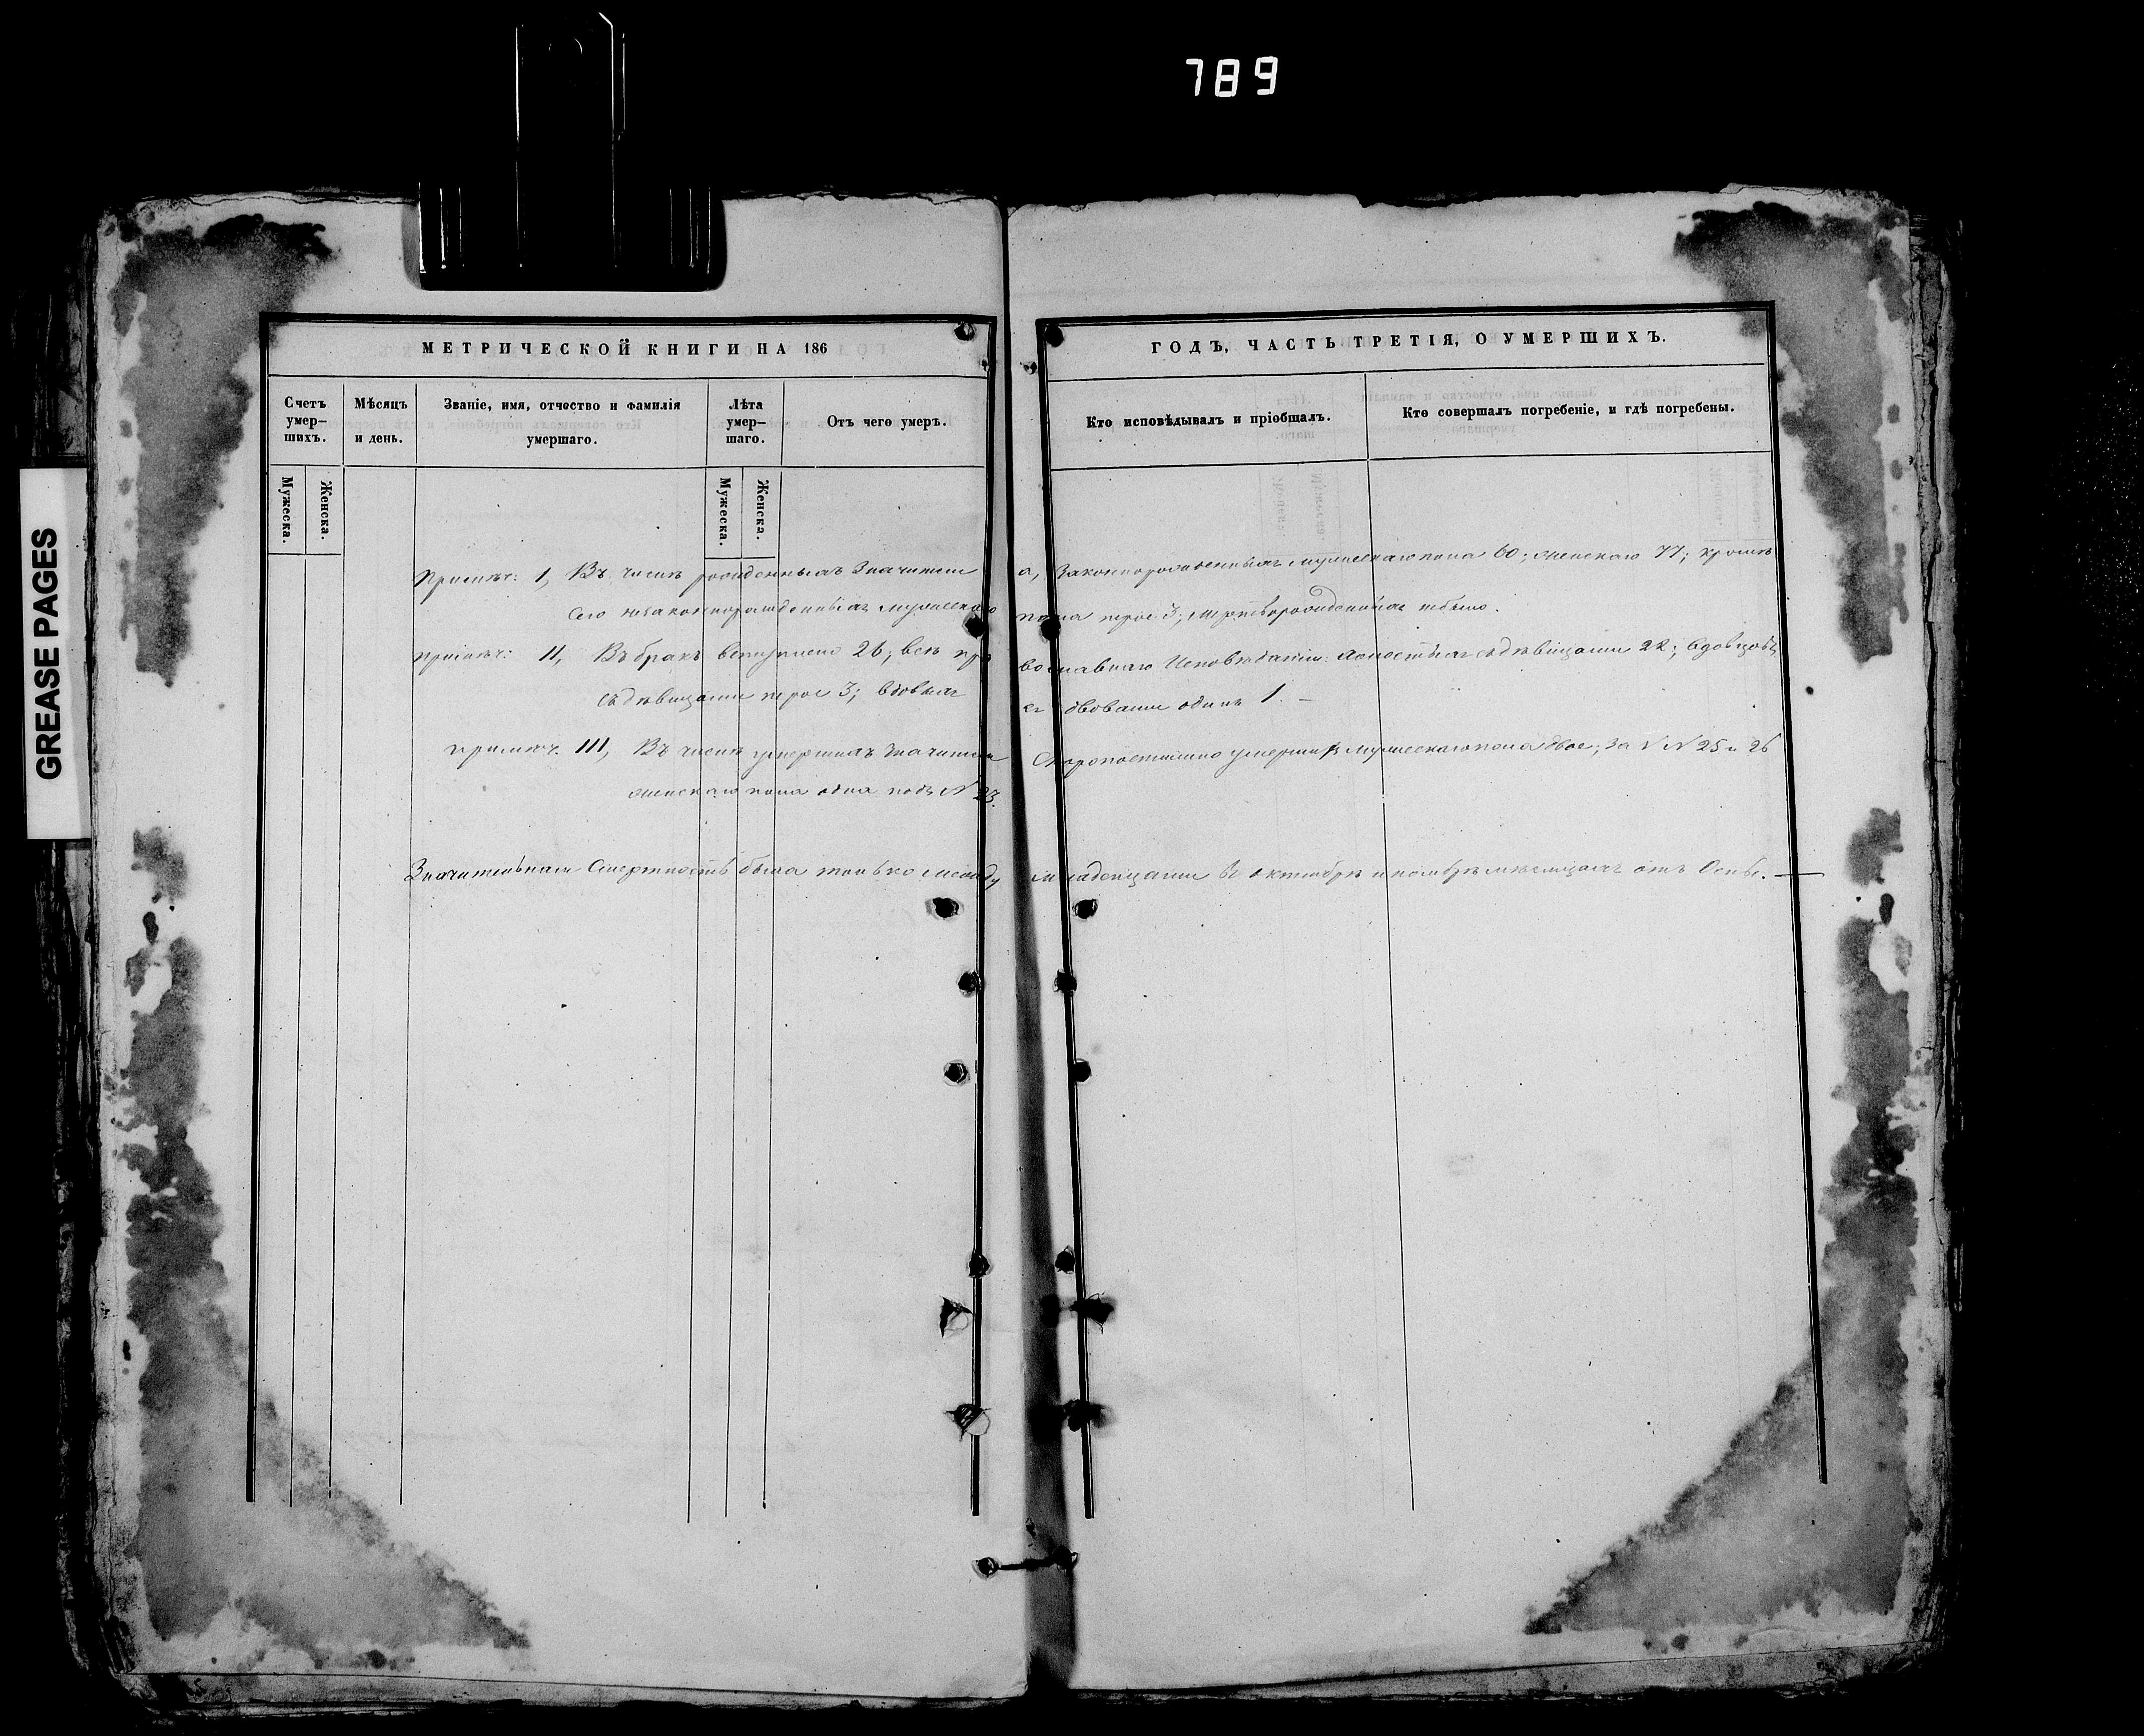 789
GREASE PAGES
МЕТРИЧЕСКОЙ КНИГИ НА 186
ГОДЪ, ЧАСТЬ ТРЕТІЯ, О УМЕРШИХЪ.
Счетъ умер-шихъ.
Мѣсяцъ и день.
Званіе, имя, отчество и фамилія умершаго.
Лѣта умер-шаго.
Отъ чего умеръ.
Кто исповѣдывалъ и пріобщалъ.
Кто совершалъ погребеніе, и гдѣ погребены.
Мужеска.
Женска.
Мужеска.
Женска.
Примѣч: I, Въ числѣ рожденныхъ Значител а, Законнорожденныхъ мужескаго пола 60; женскаго 77; кромѣ
сего незаконнорожденныхъ мужескаго пола трое 3; мертворожденныхъ небыло.
Примѣч: II, Въ бракъ вступило 26; всѣ православнаго Исповѣданія: холостыхъ съ дѣвицами 22; вдовцовъ
съ дѣвицами трое 3; вдовыхъ съ вдовами одинъ 1. —
Примѣч. III, Въ числѣ умершихъ значител Скоропостижно умершихъ мужескаго пола двое, за N N 25 и 26
женскаго пола одна подъ N 23.
Значительная Смертность была только между младенцами въ октябрѣ и ноябрѣ мѣсяцахъ отъ Оспы. —